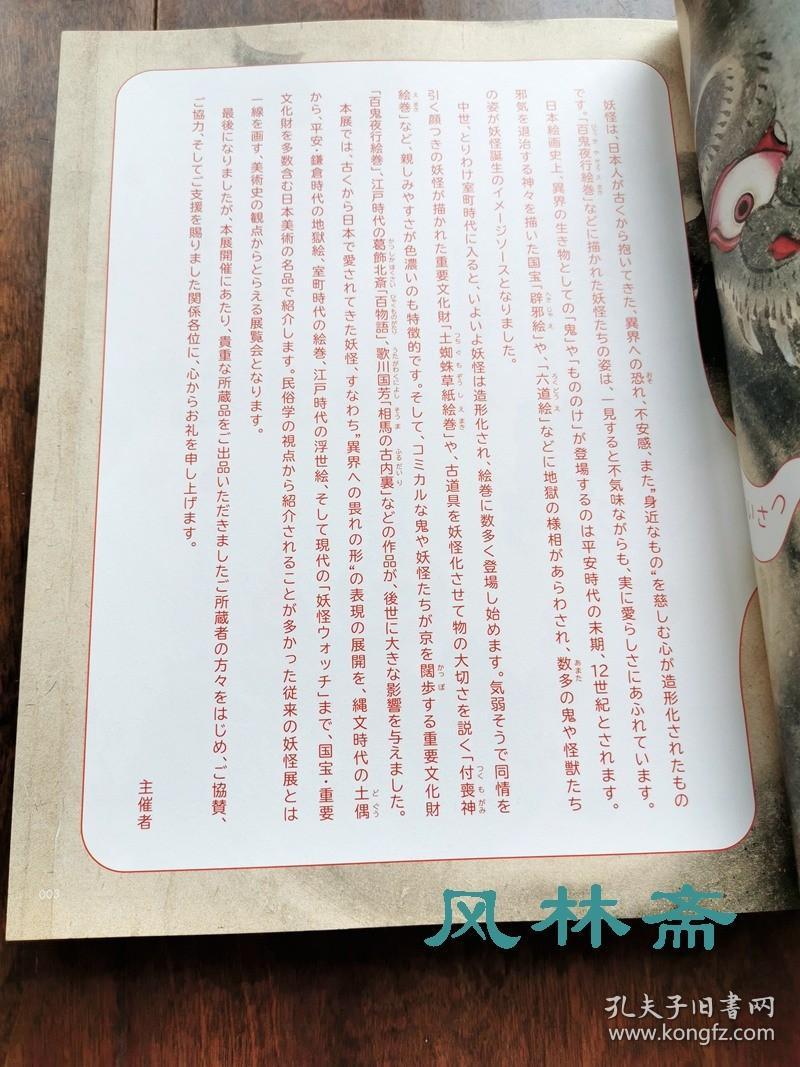 いさつ
妖怪は、日本人が古くから抱いてきた、異界への恐れ、不安感、また”身近なもの“を慈しむ心が造形化されたもの
です。「百鬼夜行絵巻」などに描かれた妖怪たちの姿は、一見すると不気味ながらも、実に愛らしさにあふれています。
日本絵画史上、異界の生き物としての「鬼」や「もののけ」が登場するのは平安時代の末期、12世紀とされます。
邪気を退治する神々を描いた国宝「辟邪絵」や、「六道絵」などに地獄の様相があらわされ、数多の鬼や怪獣たち
の姿が妖怪誕生のイメージソースとなりました。
中世、とりわけ室町時代に入ると、いよいよ妖怪は造形化され、絵巻に数多く登場し始めます。気弱そうで同情を
引く顔つきの妖怪が描かれた重要文化財「土蜘蛛草紙絵巻」や、古道具を妖怪化させて物の大切さを説く「付喪神
絵巻」など、親しみやすさが色濃いのも特徴的です。そして、コミカルな鬼や妖怪たちが京を闊歩する重要文化財
「百鬼夜行絵巻」、江戸時代の葛飾北斎「百物語」、歌川国芳「相馬の古内裏」などの作品が、後世に大きな影響を与えました。
本展では、古くから日本で愛されてきた妖怪、すなわち”異界への畏れの形“の表現の展開を、縄文時代の土偶
から、平安・鎌倉時代の地獄絵、室町時代の絵巻、江戸時代の浮世絵、そして現代の「妖怪ウォッチ」まで、国宝・重要
文化財を多数含む日本美術の名品で紹介します。民俗学の視点から紹介されることが多かった従来の妖怪展とは
一線を画す、美術史の観点からとらえる展覧会となります。
最後になりましたが、本展開催にあたり、貴重な所蔵品をご出品いただきましたご所蔵者の方々をはじめ、ご協賛、
ご協力、そしてご支援を賜りました関係各位に、心からお礼を申し上げます。
主催者
003
风林斋
孔夫子旧书网
www.kongfz.com